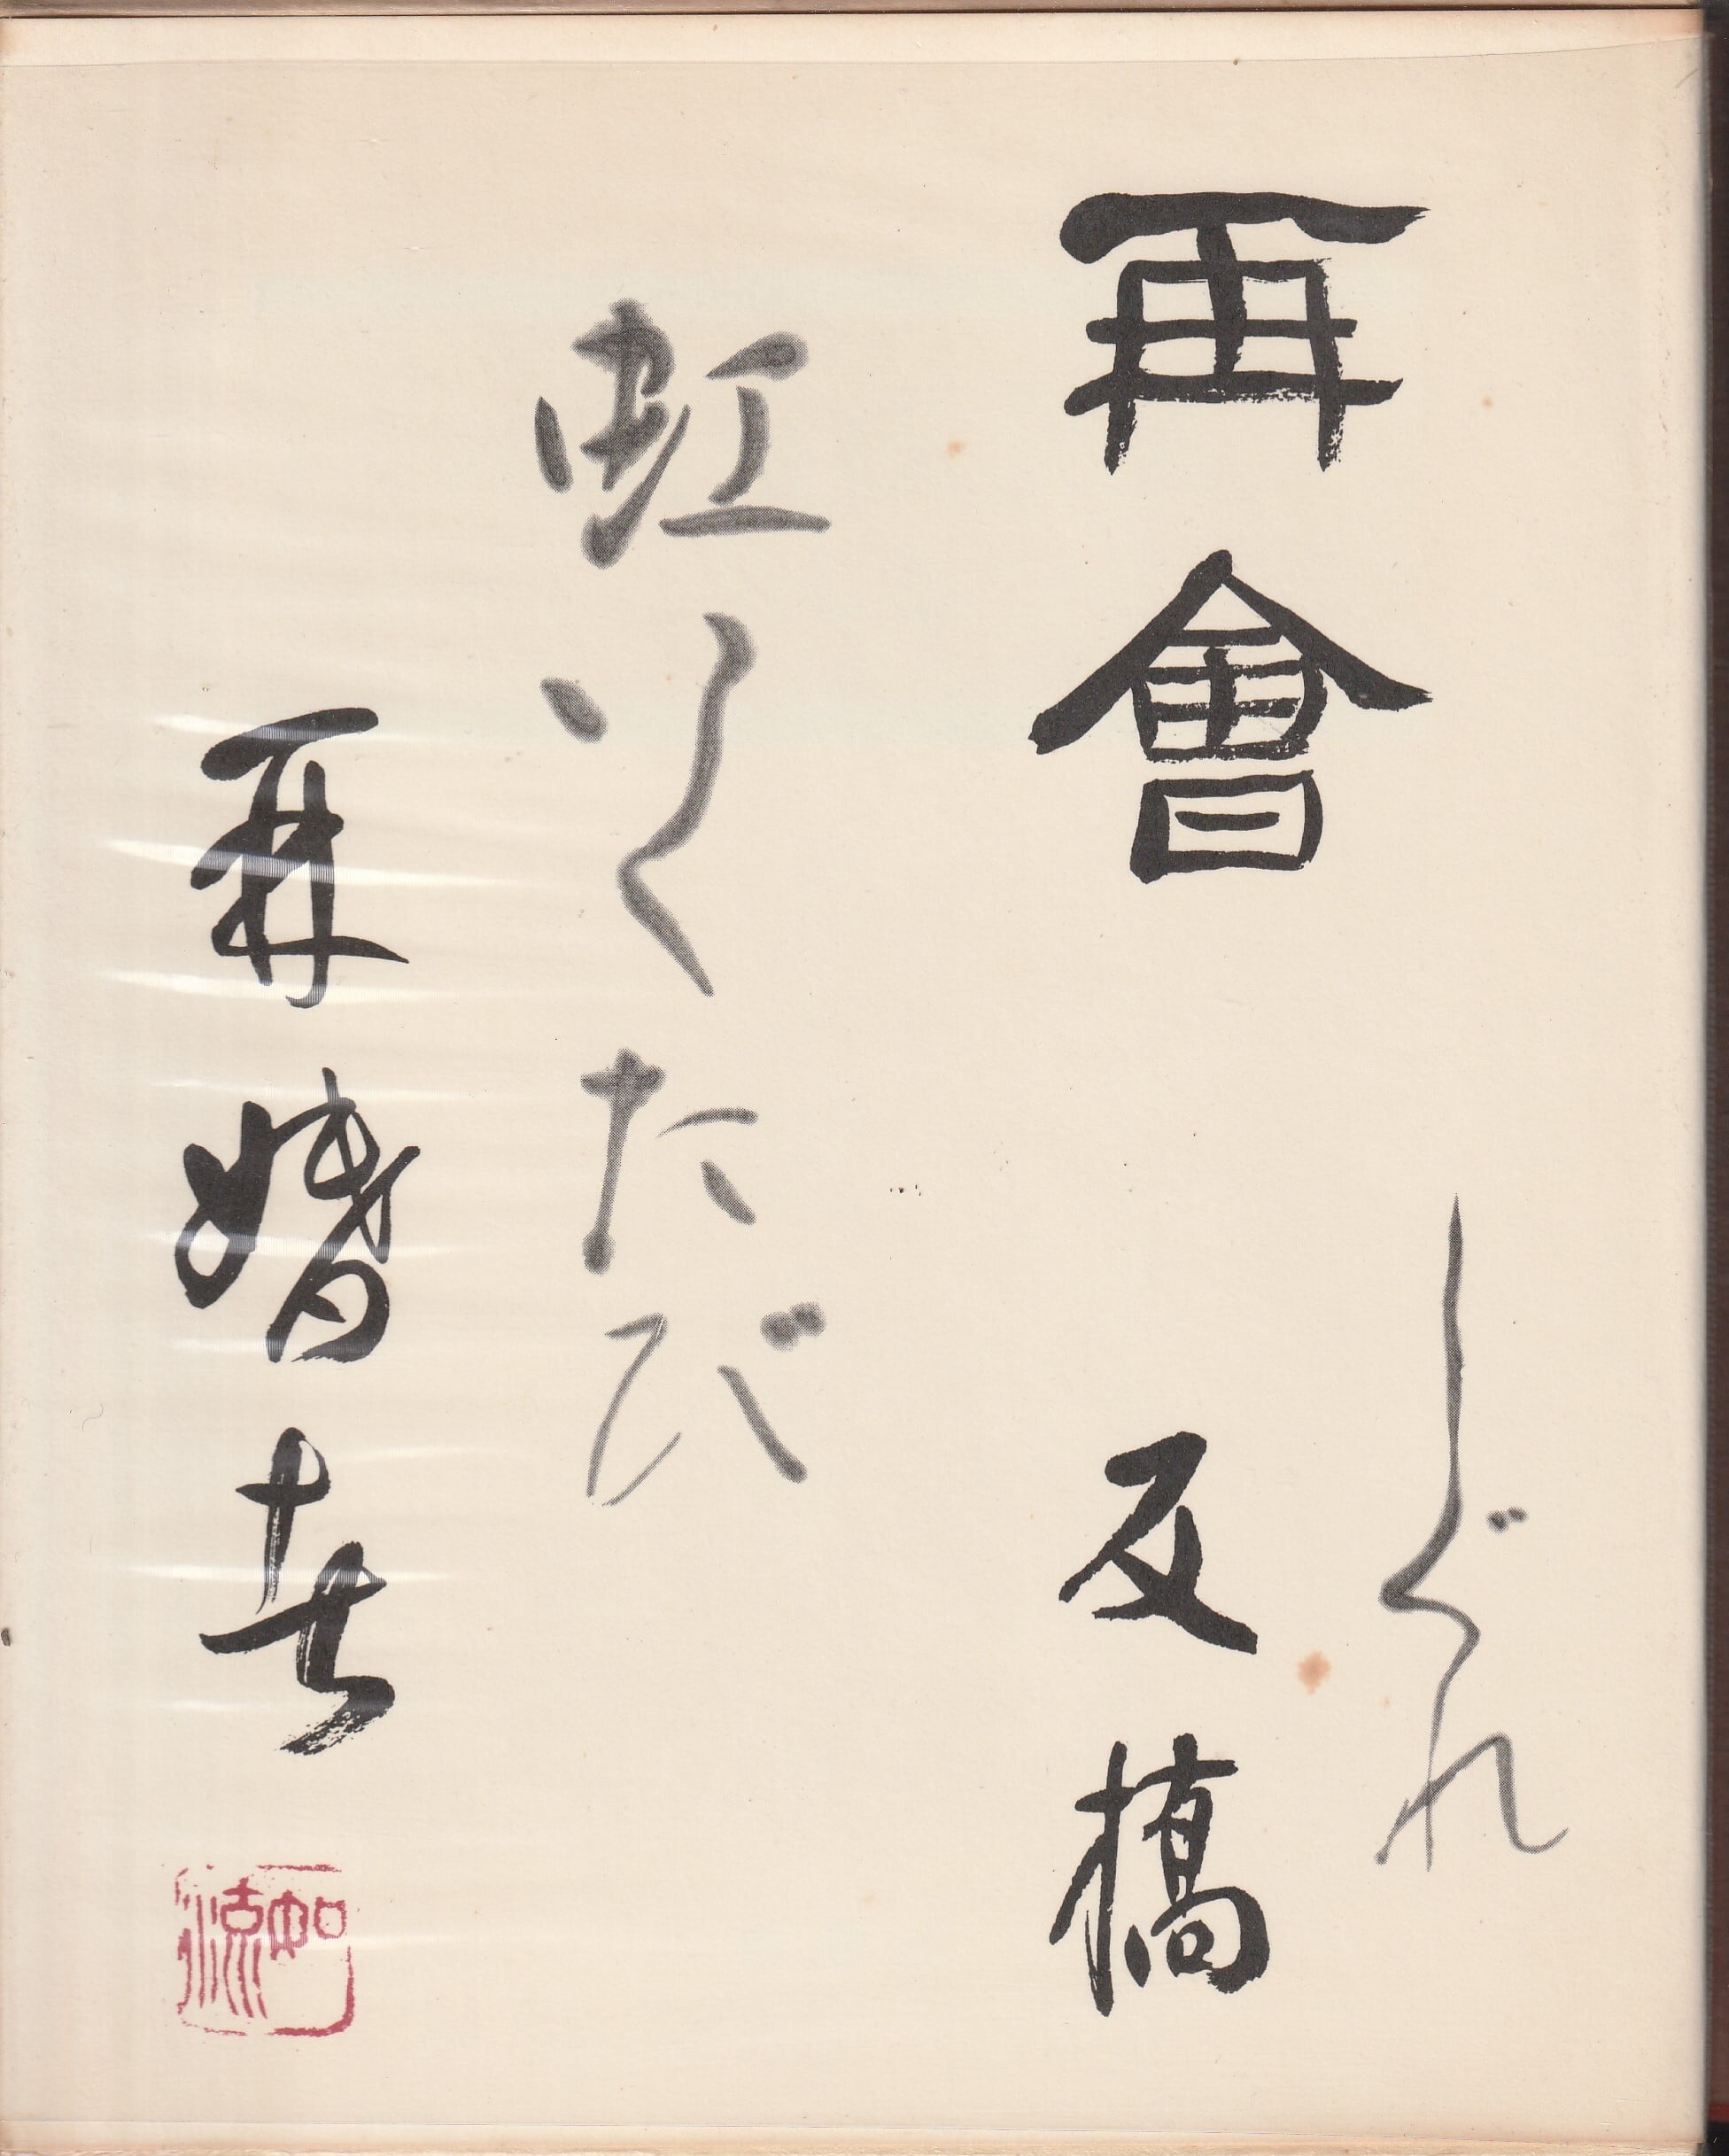 しぐれ
再會
反橋
虹いくたび
再婚者